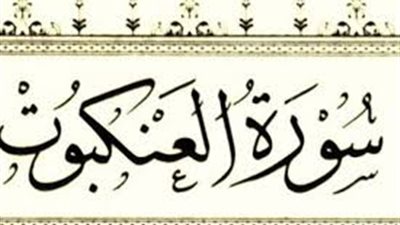 سُورَةُ الْعَنْكَبُوتِ